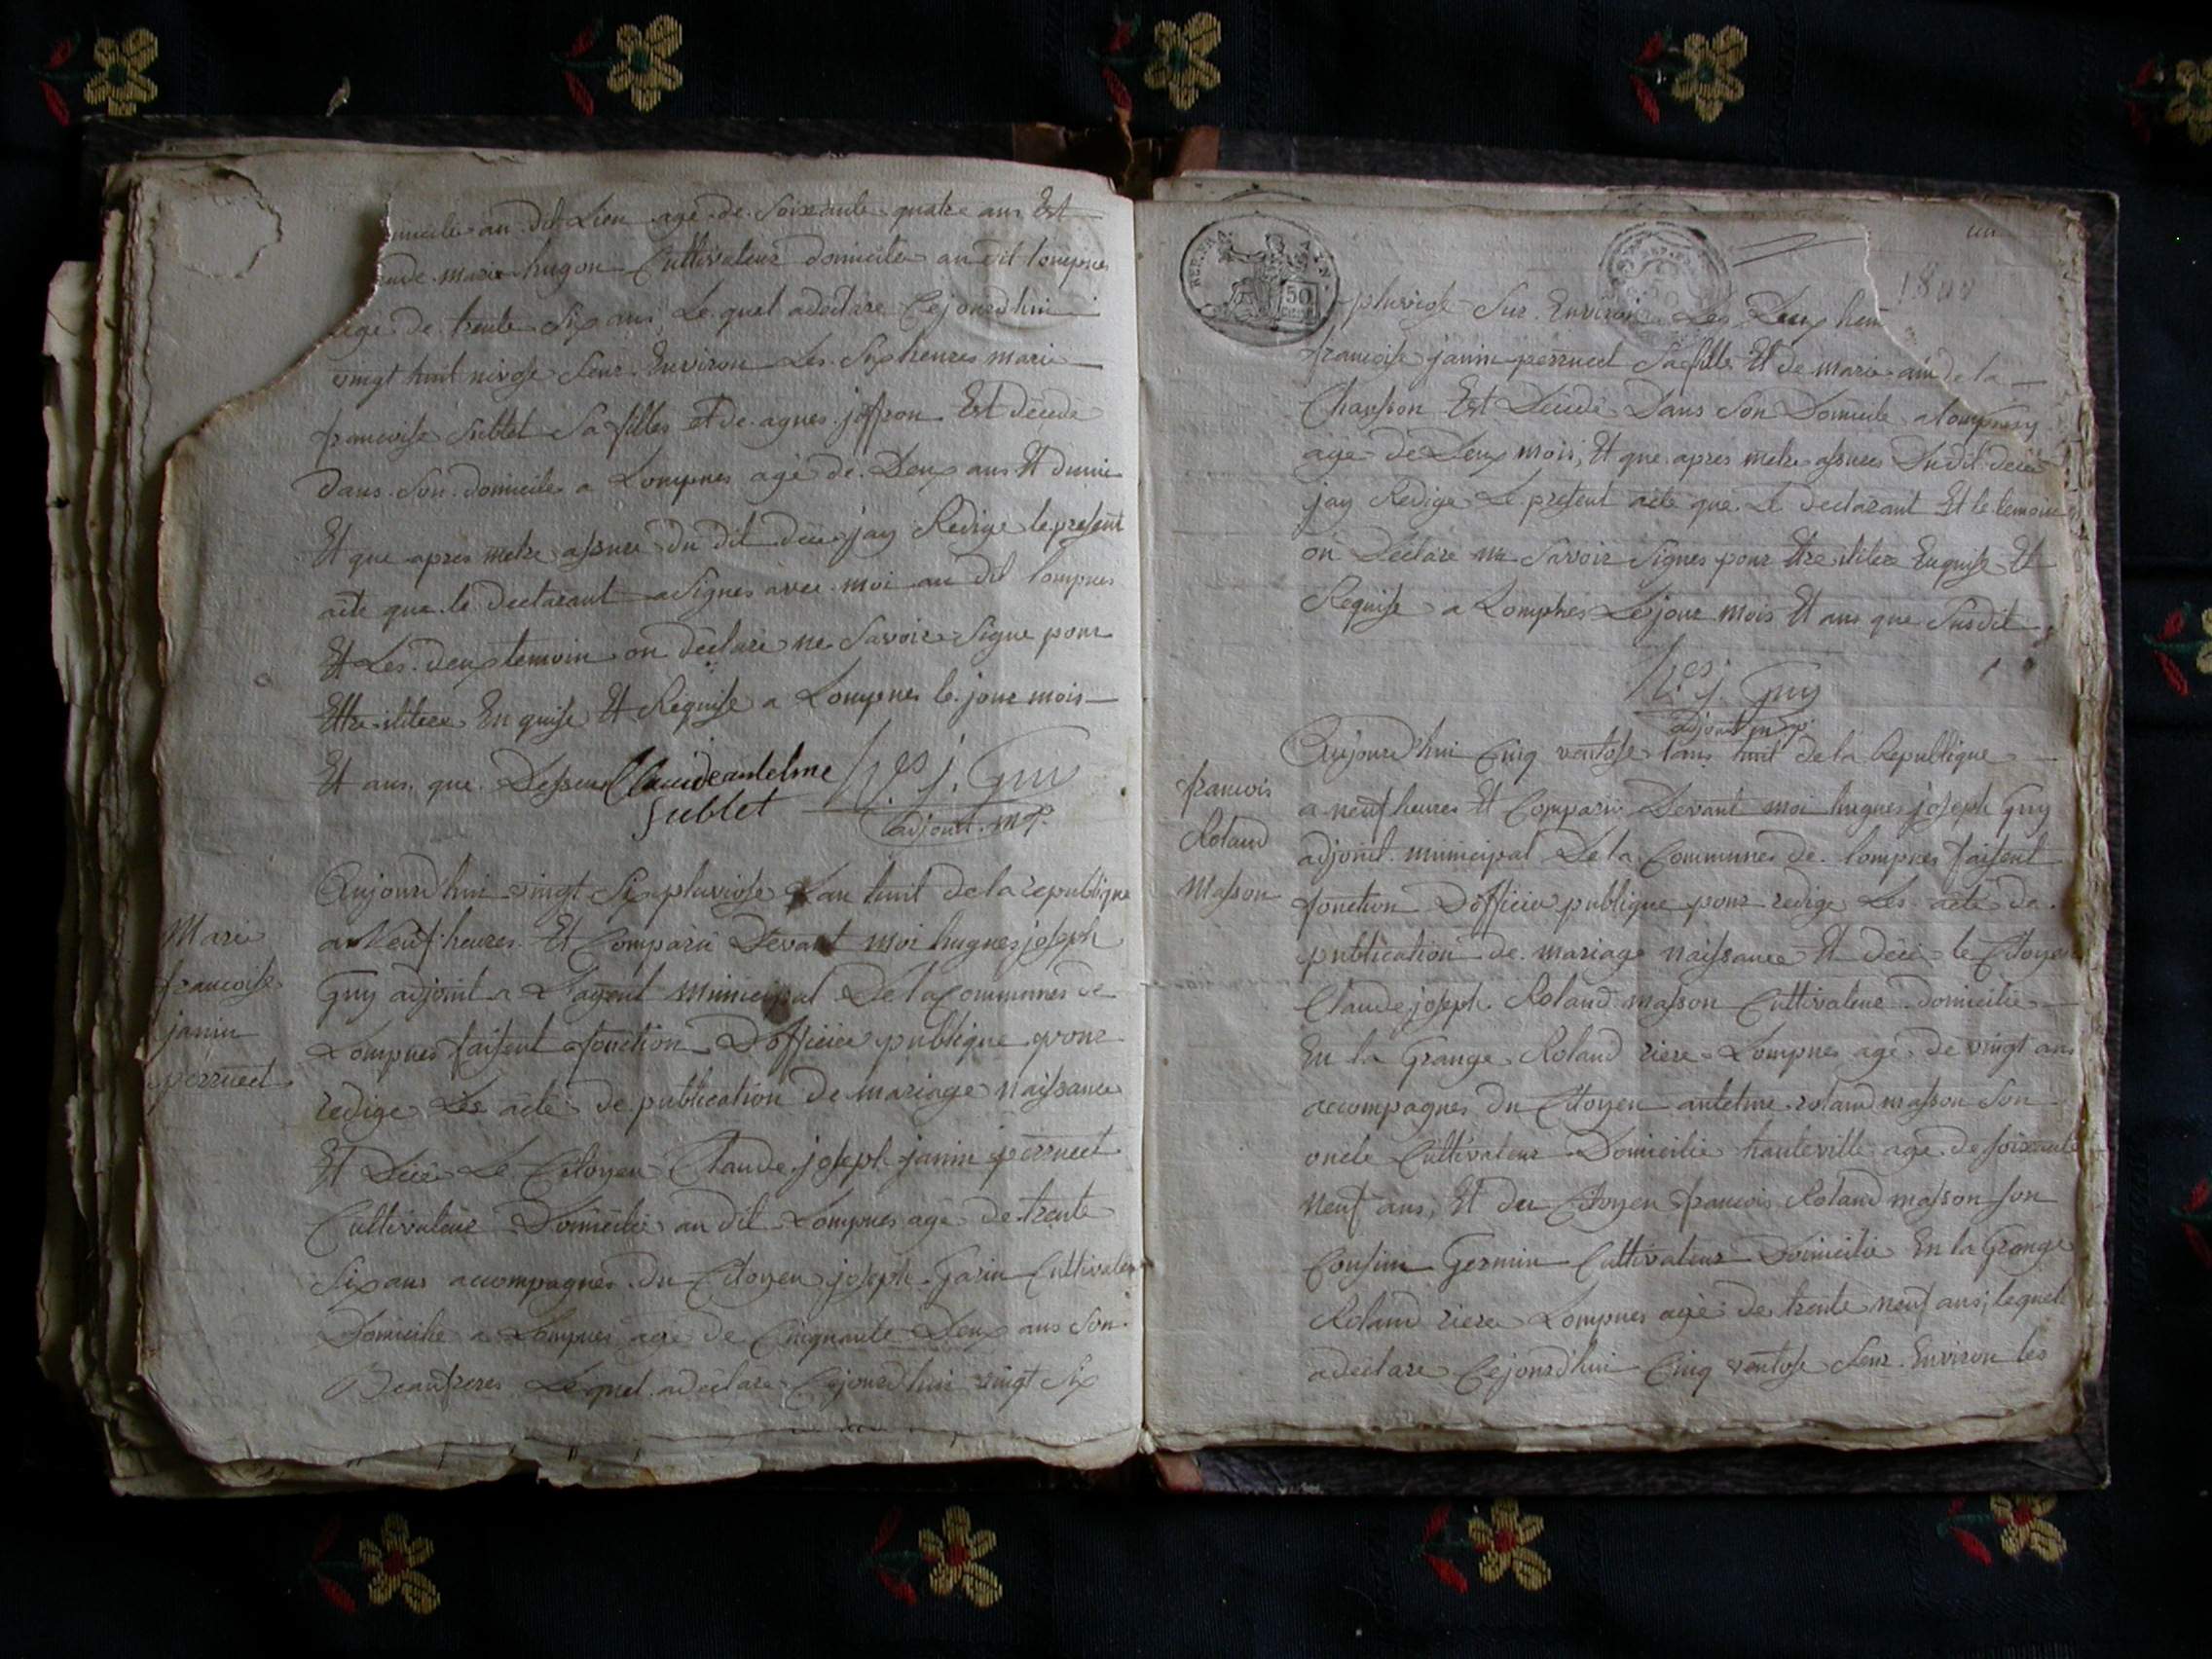 au dit Lieu age de Soixante quatre ans Est
marie hugon Cultivateur domicilie au dit lompnes
age de trente Six ans Le quel a déclare Cejourdhui
vingt huit nivose Seur Environ Les Six heures marie
francoise Sublet Sa filles et de agnes joffron Est décédé
Dans Son domicile a Lompnes agé de Deux ans Et dumie
Et que apres metre assure du dit décé jay Redige le present
acte que le declarant a Signes avec moi au dit lompnes
Et Les deux temoin on déclaré ne Savoir Signe pour
Ettre ilitere Enquise Et Requise a Lompnes le jour mois
Et ans que Dessus Claude antelme
Sublet
h.es j. Guy
adjoint mp.
Marie
francoise
janin
perruect
Aujourdhui vingt Six pluviose Lan huit de la republique
a Neuf heures Et Comparu Devant moi hugues joseph
Guy adjoint a Lagent Municipal De la Communes de
Lompnes faisent fonction Dofficier publique pour
redige Les acte de publication De mariage Naissance
Et Décé Le Citoyen Claude joseph janin perruect
Cultivateur Domicilié au dit Lompnes agé De trente
Six ans accompagnes du Citoyen joseph Garin Cultivateur
Domicilie a Lompnes agé De Cinquante Deux ans Son
Beaufreres Lequel a déclare Cejourdhui vingt Six
REP. FRA. AIN.
50
un
1800
pluviose Sur Environ Les Deux heur
francoise janin perruect Sa fille Et de marie aimé de la
Chansson Est Décédé Dans Son Domicile a lompnes
age de Deux mois, Et que apres metre assures Du dit décé
jay Redigé Le present acte que Le declarant Et le temoins
on Déclare ne Savoir Signes pour Etre ilitere Enquise Et
Requise a Lompnes Le jour mois Et ans que Susdit
h.es j. Guy
adjoint mp.
francois
Roland
Masson
Aujourdhui Cinq ventose lans huit de la Republique
a neuf heures Et Comparu Devant moi hugues joseph Guy
adjoint municipal De la Communes de lompnes faisent
fonction Dofficier publique pour redige Les acte de
publication de mariage Naissance Et décé le Citoyen
Claude joseph Roland masson Cultivateur domicilie
En la Grange Roland riere Lompnes age de vingt ans
accompagnes du Citoyen antelme roland masson Son
oncle Cultivateur Domicilie hauteville age de Soixante
Neuf ans, Et du Citoyen francois Roland masson Son
Cousim Germin Cultivateur Domicilie En la Grange
Roland riere Lompnes agé de trente neuf ans, lequel
a declare Cejourdhui Cinq ventose Seur Environ les